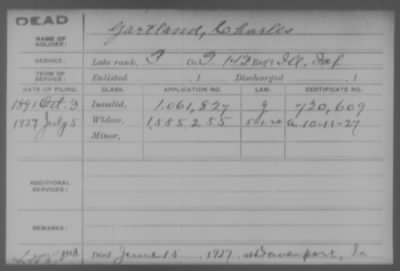 DEAD
NAME OF SOLDIER: Gartland, Charles
SERVICE: Late rank, P Co. I. 143 Reg't Ill, Inf.
TERM OF SERVICE: Enlisted , 1 Discharged , 1
DATE OF FILING. CLASS. APPLICATION NO. LAW. CERTIFICATE NO.
1891 Oct. 3 Invalid, 1.061,827 g 720,607
1927 July 5 Widow, 1,585,255 a 10-11-27
Minor,
ADDITIONAL SERVICES:
REMARKS:
Died June 15, 1927, at Davenport, Ia